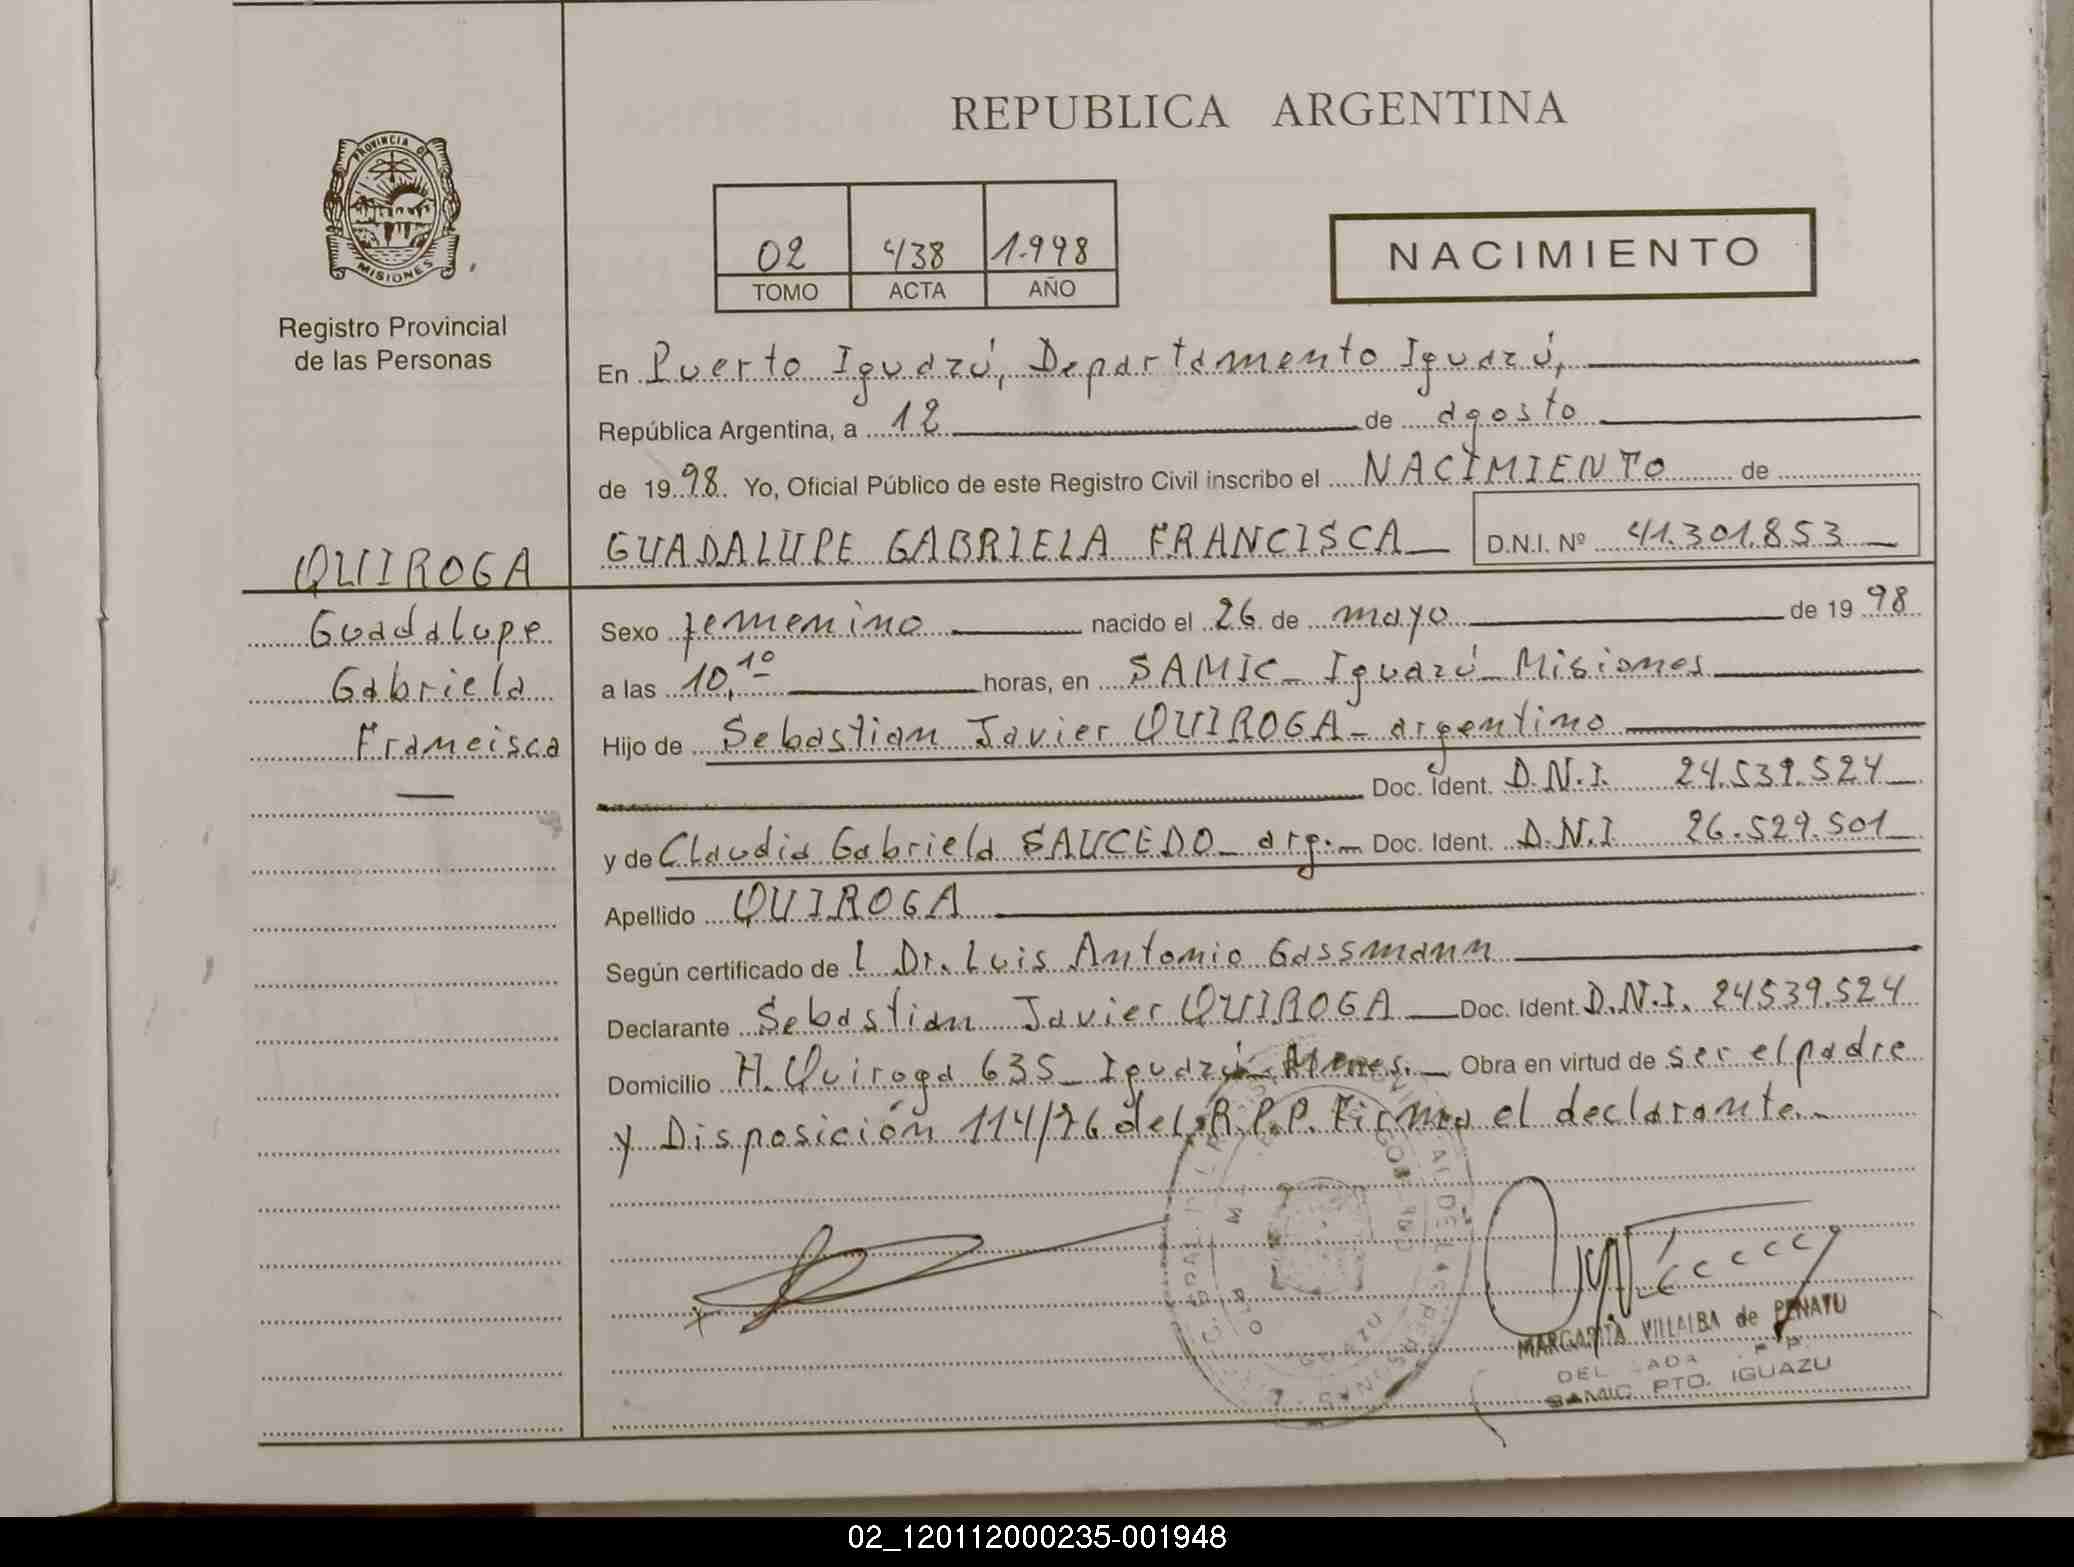 REPUBLICA ARGENTINA
PROVINCIA DE
MISIONES
Registro Provincial
de las Personas
02 438 1.998
TOMO ACTA AÑO
NACIMIENTO
En Puerto Iguazú, Departamento Iguazú,
República Argentina, a 12 de agosto
de 1998. Yo, Oficial Público de este Registro Civil inscribo el NACIMIENTO de
QUIROGA
Guadalupe
Gabriela
Francisca
GUADALUPE GABRIELA FRANCISCA D.N.I. Nº 41.301.853
Sexo femenino nacido el 26 de mayo de 1998
a las 10,10 horas, en SAMIC - Iguazú - Misiones
Hijo de Sebastian Javier QUIROGA - argentino
Doc. Ident. D.N.I. 24.539.524
y de Claudia Gabriela SAUCEDO - arg. - Doc. Ident. D.N.I. 26.529.501
Apellido QUIROGA
Según certificado de l Dr. Luis Antonio Gassmann
Declarante Sebastian Javier QUIROGA Doc. Ident. D.N.I. 24539.524
Domicilio H. Quiroga 635 - Iguazú - Mnes. - Obra en virtud de ser el padre
y Disposición 114/76 del R.P.P. Firma el declarante. -
MARGARITA VILLALBA de PENAYU
SAMIC PTO. IGUAZU
02_120112000235-001948